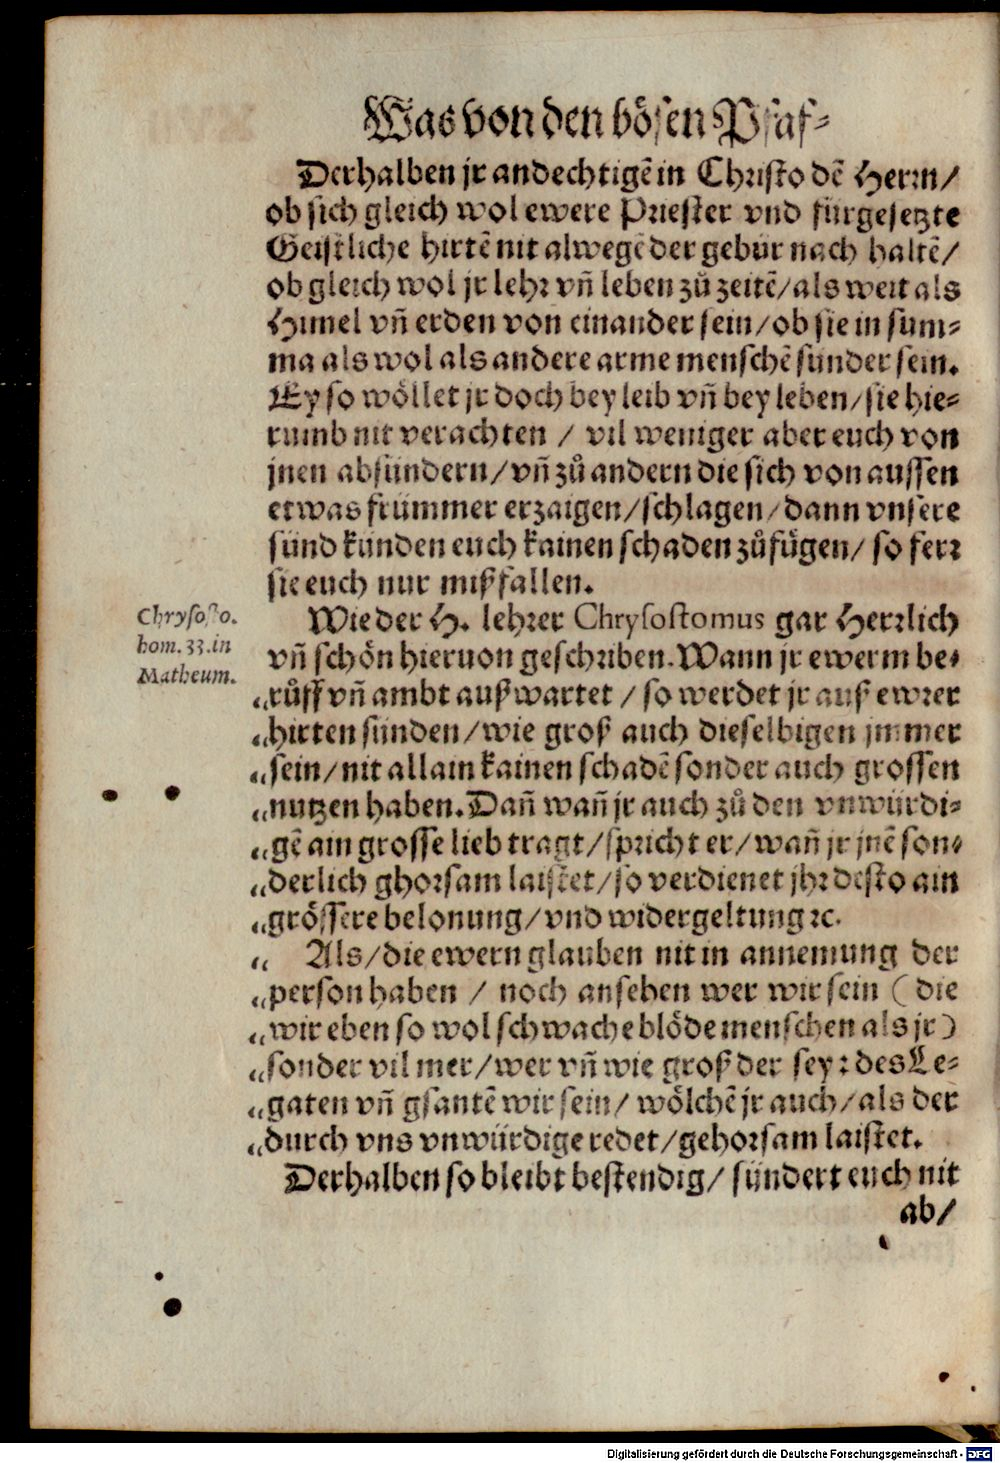 Was von den bösen Pfaf-
Derhalben jr andechtigē in Christo dē Herrn/
ob sich gleich wol ewere Priester vnd fürgesetzte
Geistliche hirtē nit alwegē der gebür nach haltē/
ob gleich wol jr lehr vñ leben zů zeitē/als weit als
Himel vñ erden von einander sein/ob sie in sum-
ma als wol als andere arme menschē sünder sein.
Ey so wöllet jr doch bey leib vñ bey leben/sie hie-
rumb nit verachten / vil weniger aber euch von
jnen absündern/vñ zů andern die sich von aussen
etwas frümmer erzaigen/schlagen/dann vnsere
sünd künden euch kainen schaden zůfügen/ so ferr
sie euch nur mißfallen.
Chrysosto.
hom.33.in
Matheum.
Wie der H. lehrer Chrysostomus gar Herrlich
vñ schön hieruon geschriben. Wann jr ewerm be-
„růff vñ ambt außwartet / so werdet jr auß ewrer
„hirten sünden/wie groß auch dieselbigen jmmer
„sein/nit allain kainen schadē sonder auch grossen
„nutzen haben. Dañ wañ jr auch zů den vnwürdi-
„gē ain grosse lieb tragt/spricht er/wañ jr jnē son-
„derlich ghorsam laistet/so verdienet jhr desto ain
„grössere belonung/vnd widergeltung ꝛc.
„ Als/die ewern glauben nit in annemung der
„person haben / noch ansehen wer wir sein (die
„wir eben so wol schwache blöde menschen als jr)
„sonder vil mer/wer vñ wie groß der sey: des Le-
„gaten vñ gsantē wir sein/ wölchē jr auch/als der
„durch vns vnwürdige redet/gehorsam laistet.
Derhalben so bleibt bestendig/ sündert euch nit
ab/
Digitalisierung gefördert durch die Deutsche Forschungsgemeinschaft - DFG